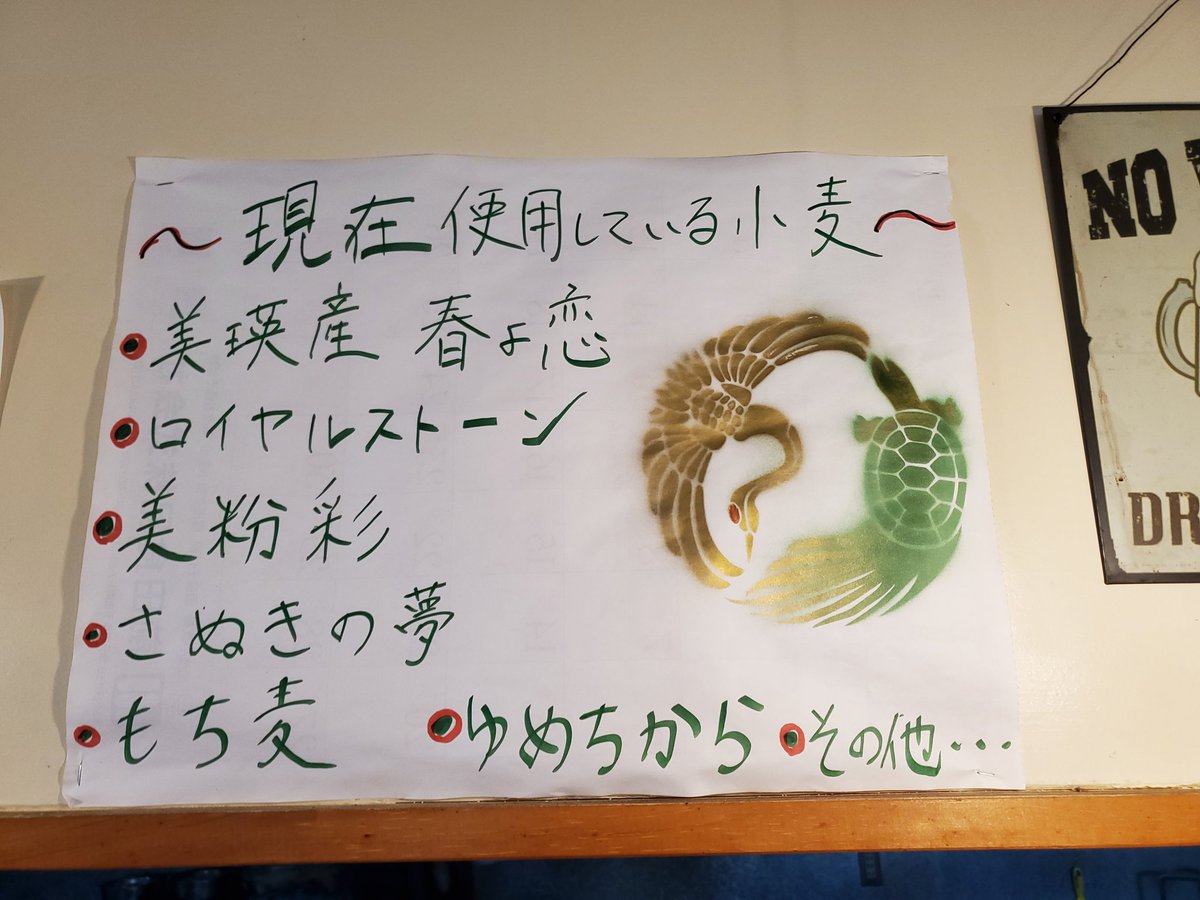 ～現在使用している小麦～
●美瑛産 春よ恋
●ロイヤルストーン
●美粉彩
●さぬきの夢
●もち麦 ●ゆめちから ●その他…
NO
DR